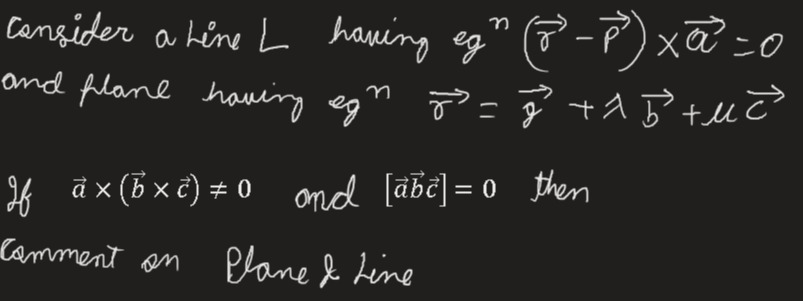 Consider a Line L having eqⁿ (r⃗ - p⃗) × a⃗ = 0
and plane having eqⁿ r⃗ = q⃗ + λ b⃗ + μ c⃗
If a⃗ × (b⃗ × c⃗) ≠ 0 and [a⃗b⃗c⃗] = 0 then
Comment on Plane & Line